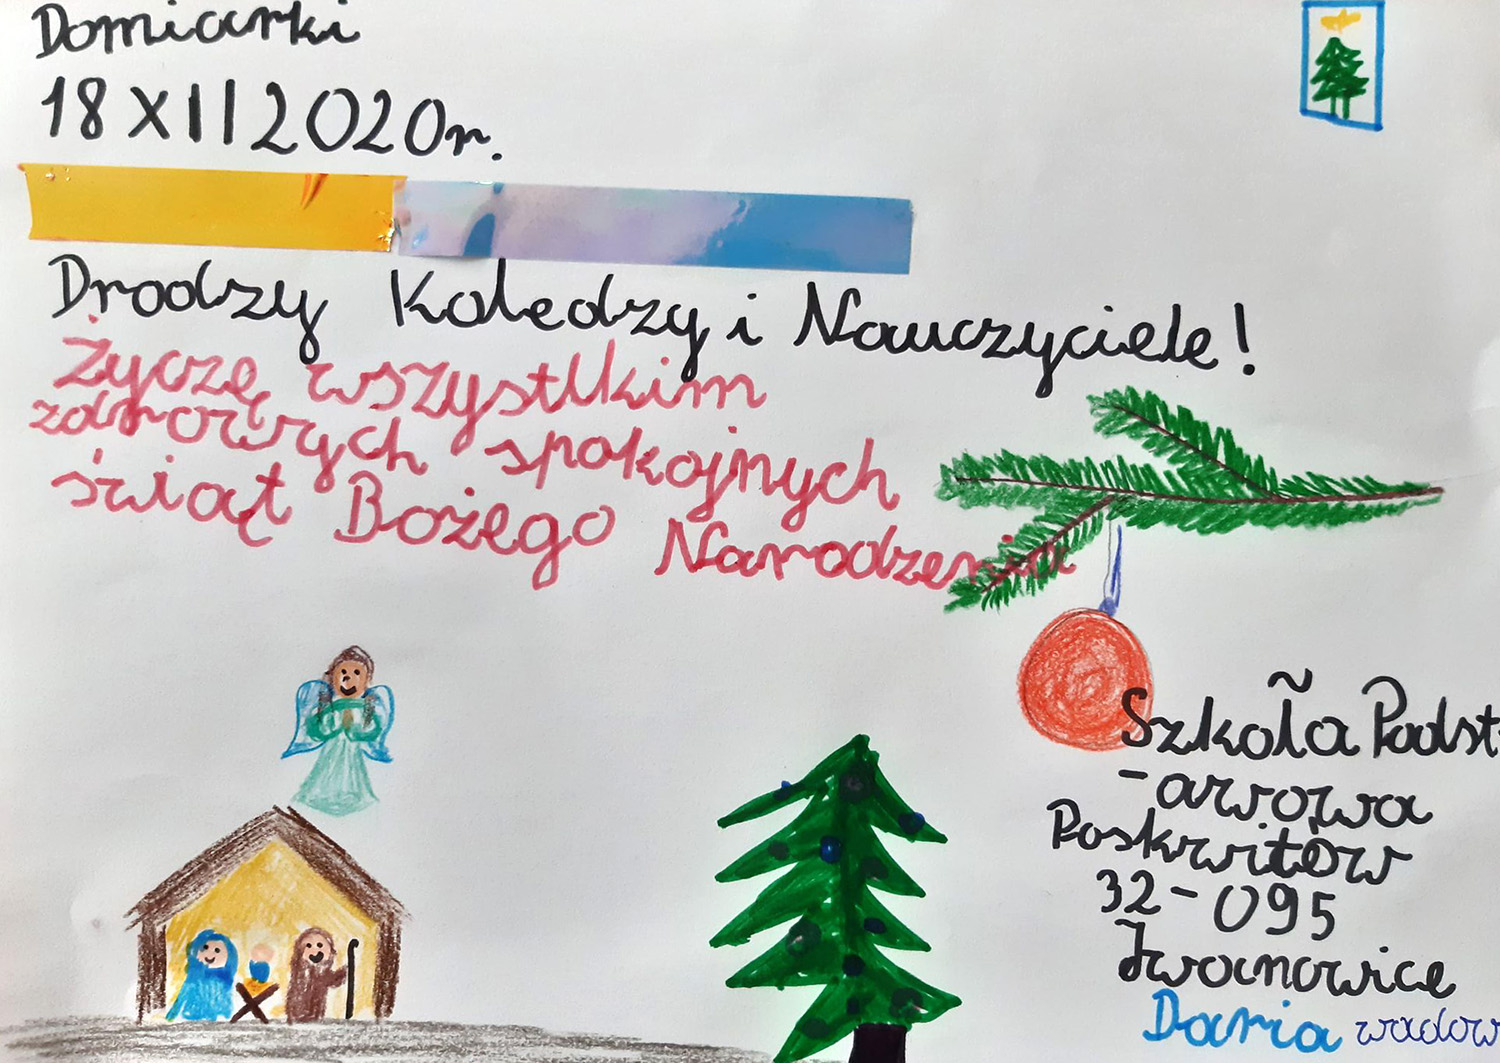 Domiarki
18 XII 2020r.
Drodzy Koledzy i Nauczyciele!
Życzę wszystkim
zdrowych spokojnych
świąt Bożego Narodzenia
Szkoła Podst
-awowa
Poskwitów
32-095
Iwanowice
Daria wadow